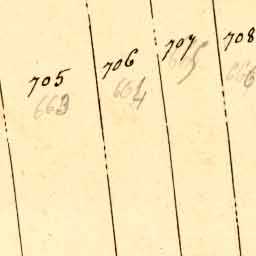 705
663
706
664
707
665
708
666